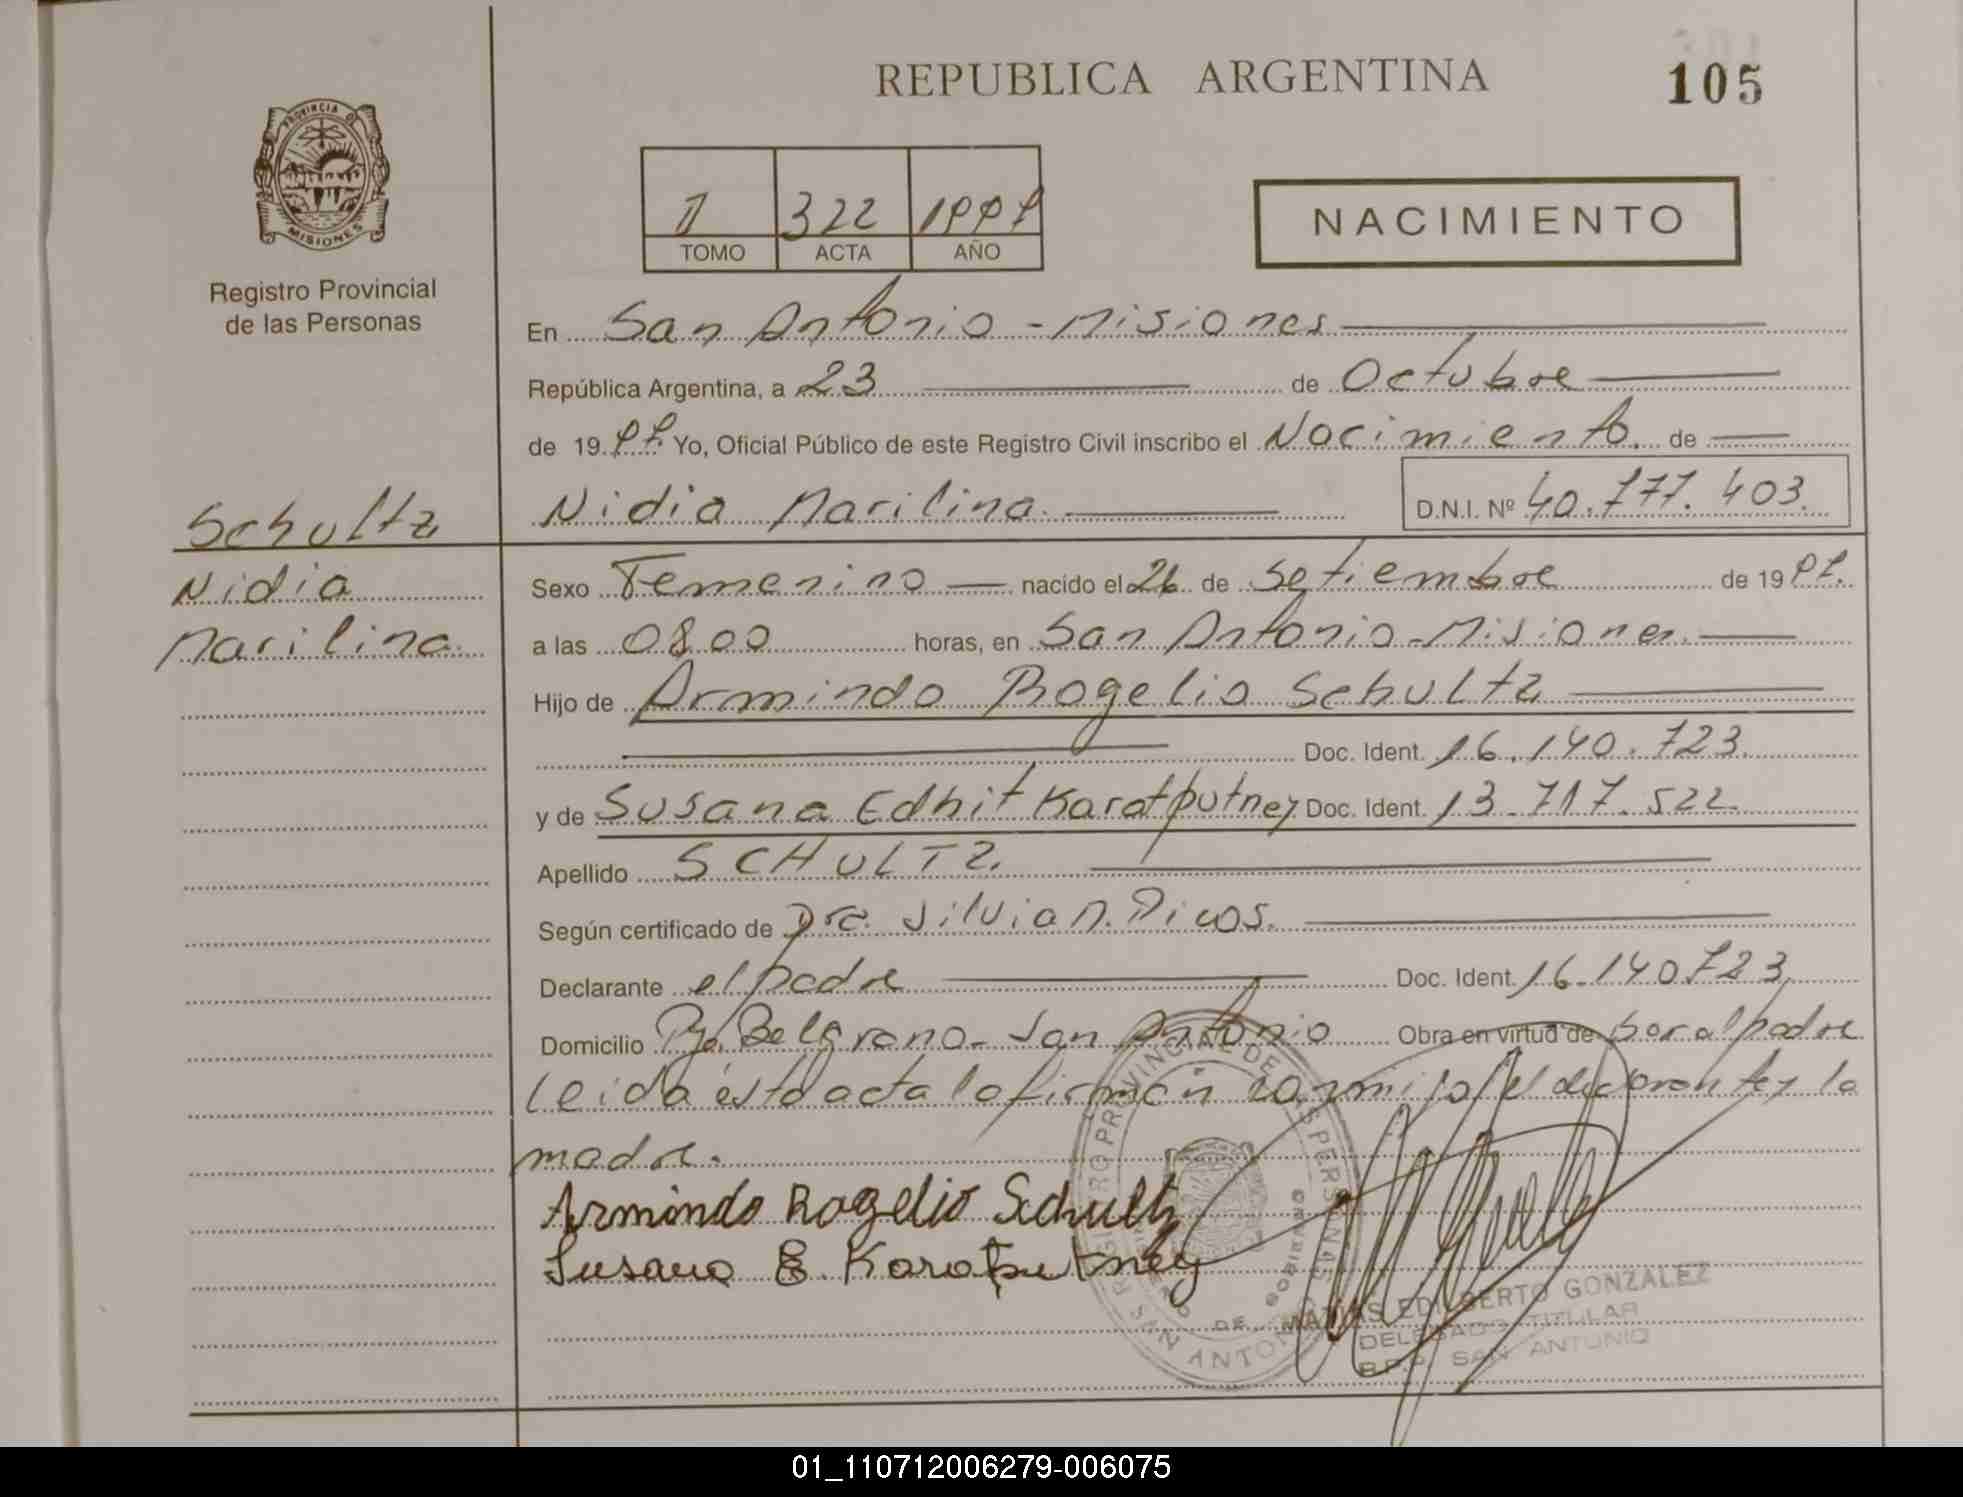 REPUBLICA ARGENTINA
105
PROVINCIA DE
MISIONES
Registro Provincial
de las Personas
1 322
TOMO ACTA AÑO
NACIMIENTO
En San Antonio - Misiones
República Argentina, a 23 de Octubre
de 19 Yo, Oficial Público de este Registro Civil inscribo el Nacimiento de
Schultz
Nidia Marilina
Nidia Marilina. D.N.I. Nº 40.777.403.
Sexo Femenino nacido el 26 de Setiembre de 19
a las 08.00 horas, en San Antonio - Misiones.
Hijo de Armindo Rogelio Schultz
Doc. Ident. 16.140.723.
y de Susana Edhit Karatputney Doc. Ident. 13.717.522.
Apellido SCHULTZ.
Según certificado de Dra. Silvia
Declarante el padre Doc. Ident. 16.140.723
Domicilio Belgrano - San Antonio Obra en virtud de ser el padre
Leída ésta acta la firman conmigo el declarante y la
madre.
Armindo Rogelio Schultz
Susana E. Karatputney
REGISTRO PROVINCIAL DE LAS PERSONAS
SAN ANTONIO
MATIAS EDILBERTO GONZALEZ
DELEGADO TITULAR
R.P.P. SAN ANTONIO
01_110712006279-006075